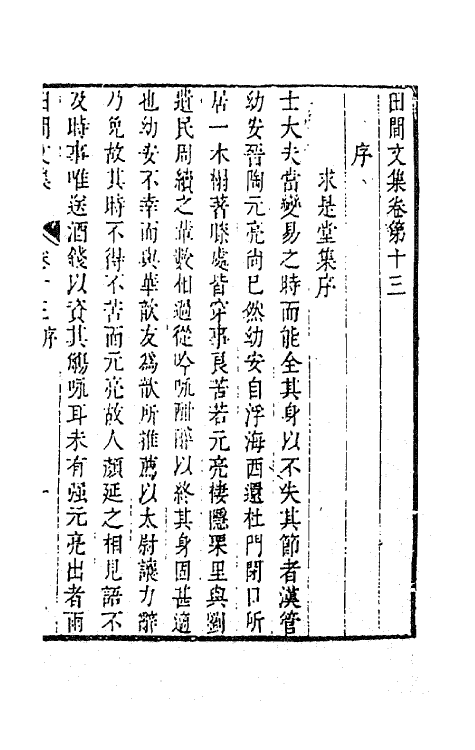 田間文集卷第十三
序
求是堂集序
士大夫當變易之時而能全其身以不失其節者漢管
幼安晉陶元亮尚已然幼安自浮海西還杜門閉口所
居一木榻著膝處皆穿事良苦若元亮棲隱栗里與劉
遺民周續之輩數相過從吟咏酣醉以終其身固甚適
也幼安不幸而與華歆友爲歆所推薦以太尉讓力辭
乃免故其時不得不苦而元亮故人顏延之相見語不
及時事唯送酒錢以資其觴咏耳未有强元亮出者雨
田間文集 卷十三序 一